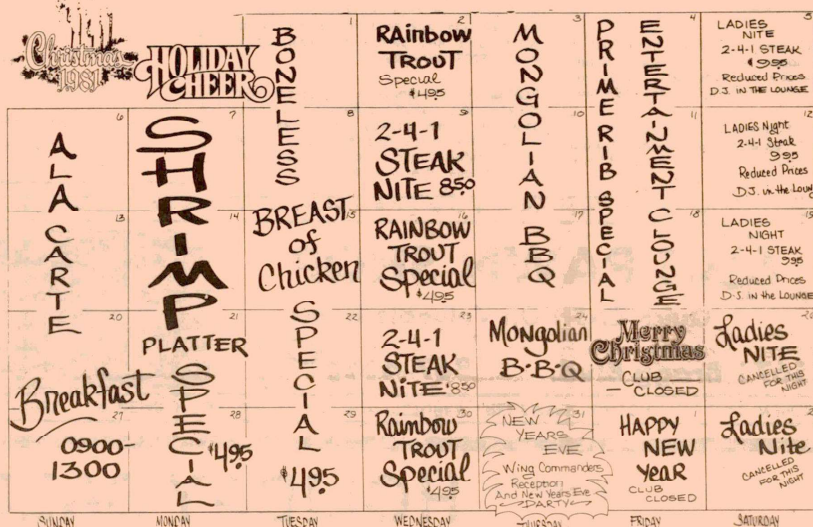 Christmas
1981
HOLIDAY
CHEER
1
BONELESS
BREAST
of
Chicken
SPECIAL
$4.95
2
RAinbow
TROUT
Special
$4.95
3
MONGOLIAN BBQ
4
PRIME RIB SPECIAL
ENTERTAINMENT CLOUNGE
5
LADIES
NITE
2-4-1 STEAK
$9.95
Reduced Prices
D.J. IN THE LOUNGE
6
ALA CARTE
7
SHRIMP
PLATTER
SPECIAL
$4.95
8
9
2-4-1
STEAK
NITE 8.50
10
11
12
LADIES Night
2-4-1 Steak
9.95
Reduced Prices
D.J. in the Loun
13
14
15
16
RAINBOW
TROUT
Special
$4.95
17
18
LADIES
NIGHT
2-4-1 STEAK
9.95
Reduced Prices
D.J. IN the LOUNGE
20
Breakfast
0900-
1300
21
22
23
2-4-1
STEAK
NiTE $8.50
24
Mongolian
B·B·Q
Merry
Christmas
CLUB
CLOSED
Ladies
NITE
CANCELLED
FOR THIS
NIGHT
27
28
29
30
Rainbow
TROUT
Special
$4.95
31
NEW
YEARS
EVE
Wing Commanders
Reception
And New Years Eve
PARTY
1
HAPPY
NEW
YEAR
CLUB
CLOSED
Ladies
Nite
CANCELLED
FOR THIS
NIGHT
SUNDAY
MONDAY
TUESDAY
WEDNESDAY
THURSDAY
FRIDAY
SATURDAY